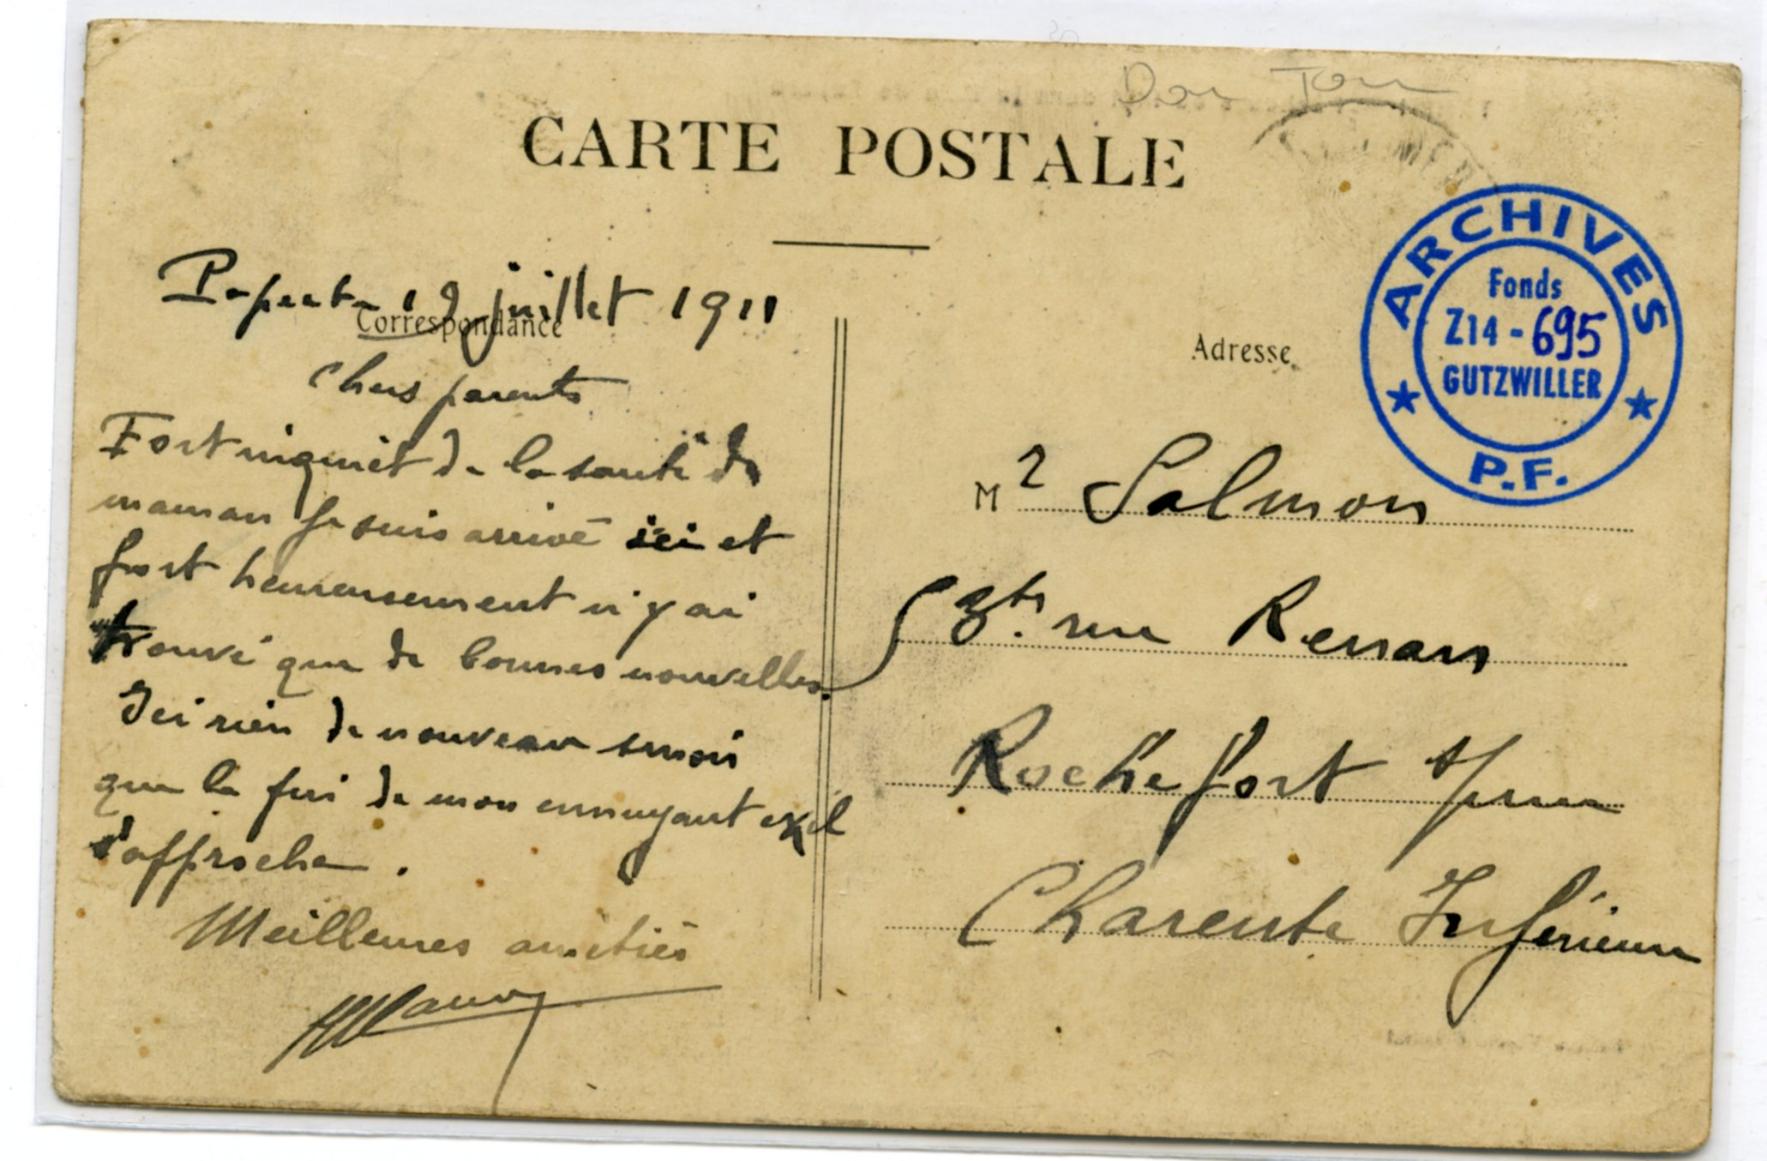 CARTE POSTALE
Papeete 19 juillet 1911
Correspondance
Chers parents
Fort inquiet de la santé de
maman je suis arrivé ici et
fort heureusement n'y ai
trouvé que de bonnes nouvelles.
Ici rien de nouveau sinon
que la fin de mon ennuyant exil
s'approche.
Meilleures amitiés
Adresse
Mr Salmon
rue Renan
Rochefort s/mer
Charente Inférieure
ARCHIVES
Fonds
Z14-695
GUTZWILLER
P.F.